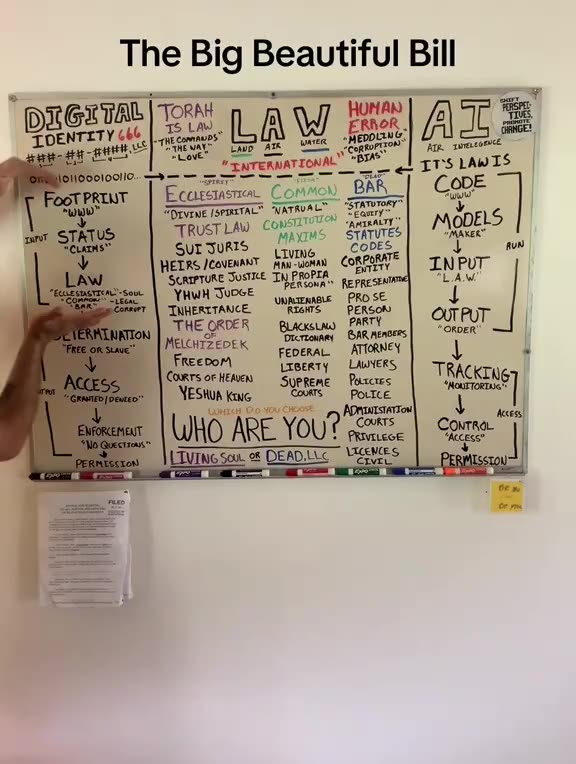 The Big Beautiful Bill
DIGITAL
IDENTITY 666
###-##-####, LLC
FOOTPRINT
"WWW"
INPUT
STATUS
"CLAIMS"
LAW
"ECCLESIASTICAL" - SOUL
"COMMON" - LEGAL
"BAR" - CORRUPT
DETERMINATION
"FREE OR SLAVE"
ACCESS
"GRANTED/DENIED"
ENFORCEMENT
"NO QUESTIONS"
PERMISSION
TORAH
IS LAW
"THE COMMANDS"
"THE WAY"
"LOVE"
LAW
LAND AIR WATER
"INTERNATIONAL"
HUMAN
ERROR
"MEDDLING"
CORRUPTION"
"BIAS"
"SPIRIT"
ECCLESIASTICAL
"DIVINE/SPIRITAL"
TRUST LAW
SUI JURIS
HEIRS/COVENANT
SCRIPTURE JUSTICE
YHWH JUDGE
INHERITANCE
THE ORDER
OF
MELCHIZEDEK
FREEDOM
COURTS OF HEAVEN
YESHUA KING
COMMON
"NATRUAL"
CONSTITUTION
MAXIMS
LIVING
MAN-WOMAN
IN PROPIA
PERSONA"
UNALIENABLE
RIGHTS
BLACKSLAW
DICTIONARY
FEDERAL
LIBERTY
SUPREME
COURTS
"DEAD"
BAR
"STATUTORY"
"EQUITY"
"AMIRALTY"
STATUTES
CODES
CORPORATE
ENTITY
REPRESENTATIVE
PRO SE
PERSON
PARTY
BAR MEMBERS
ATTORNEY
LAWYERS
POLICIES
POLICE
ADMINISTATION
COURTS
PRIVILEGE
LICENCES
CIVIL
WHICH DO YOU CHOOSE
WHO ARE YOU?
LIVING SOUL OR DEAD, LLC
AI
AIR INTELLIGENCE
SHIFT
PERSPEC-
TIVES,
PROMOTE
CHANGE!
IT'S LAW IS
CODE
"WWW"
MODELS
"MAKER"
RUN
INPUT
"L.A.W."
OUTPUT
"ORDER"
TRACKING
"MONITORING"
ACCESS
CONTROL
"ACCESS"
PERMISSION
EXPO
FILED